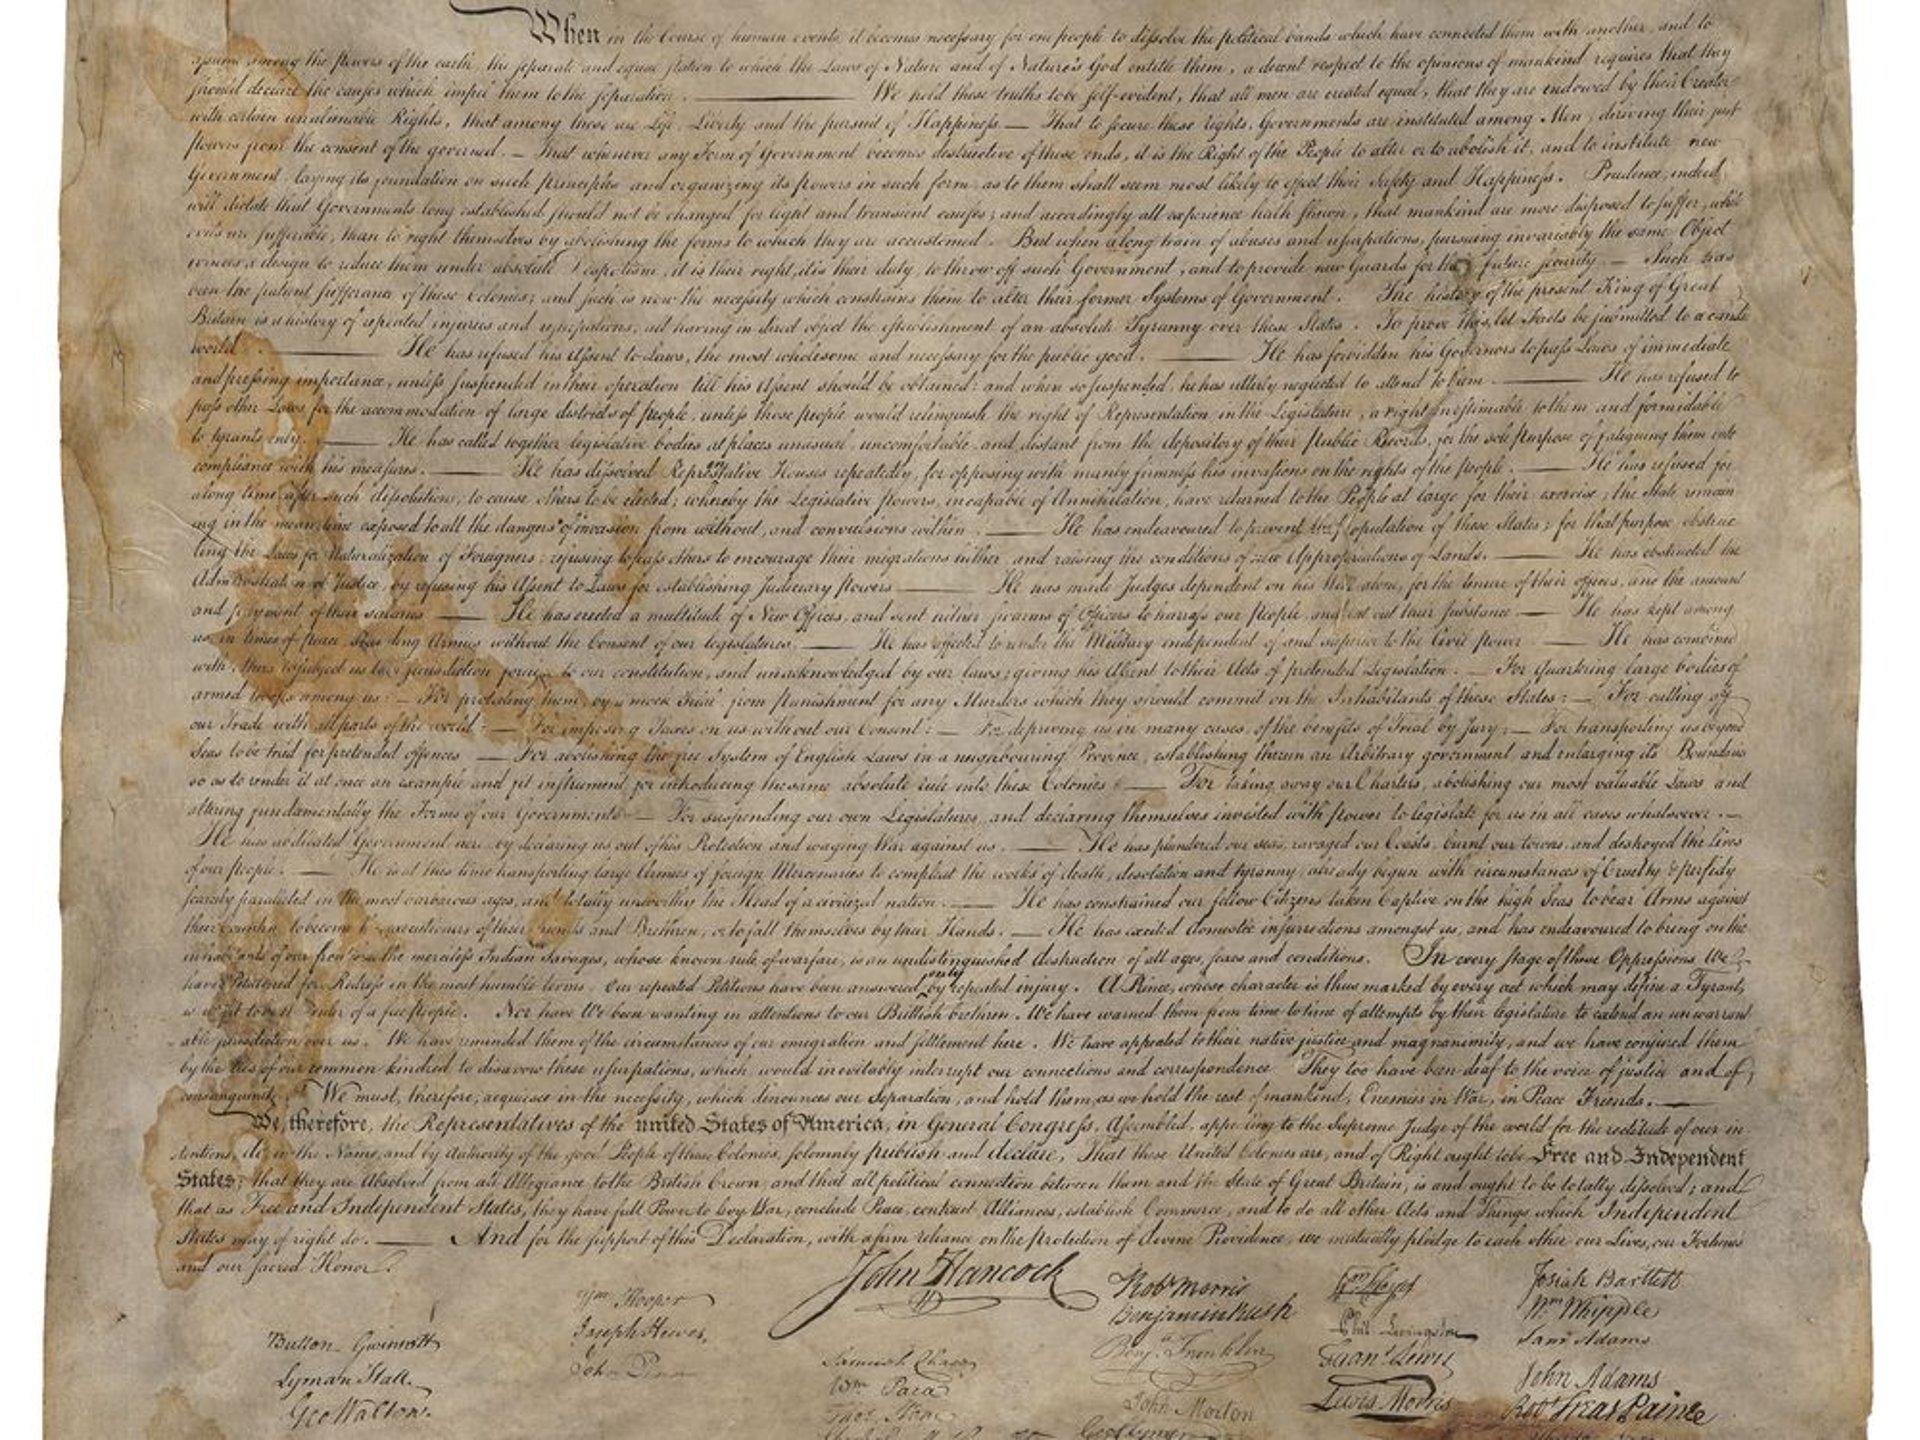 When in the Course of human events, it becomes necessary for one people to dissolve the political bands which have connected them with another, and to
assume among the powers of the earth, the separate and equal station to which the Laws of Nature and of Nature's God entitle them, a decent respect to the opinions of mankind requires that they
should declare the causes which impel them to the separation. — We hold these truths to be self-evident, that all men are created equal, that they are endowed by their Creator
with certain unalienable Rights, that among these are Life, Liberty and the pursuit of Happiness — That to secure these rights, Governments are instituted among Men, deriving their just
powers from the consent of the governed. — That whenever any Form of Government becomes destructive of these ends, it is the Right of the People to alter or to abolish it, and to institute new
Government, laying its foundation on such principles and organizing its powers in such form, as to them shall seem most likely to effect their Safety and Happiness. Prudence, indeed,
will dictate that Governments long established should not be changed for light and transient causes; and accordingly all experience hath shewn, that mankind are more disposed to suffer, while
evils are sufferable, than to right themselves by abolishing the forms to which they are accustomed. But when a long train of abuses and usurpations, pursuing invariably the same Object
evinces a design to reduce them under absolute Despotism, it is their right, it is their duty, to throw off such Government, and to provide new Guards for their future security. — Such has
been the patient sufferance of these Colonies; and such is now the necessity which constrains them to alter their former Systems of Government. The history of the present King of Great
Britain is a history of repeated injuries and usurpations, all having in direct object the establishment of an absolute Tyranny over these States. To prove this, let Facts be submitted to a candid
world. — He has refused his Assent to Laws, the most wholesome and necessary for the public good. — He has forbidden his Governors to pass Laws of immediate
and pressing importance, unless suspended in their operation till his Assent should be obtained; and when so suspended, he has utterly neglected to attend to them. — He has refused to
pass other Laws for the accommodation of large districts of people, unless those people would relinquish the right of Representation in the Legislature, a right inestimable to them and formidable
to tyrants only. — He has called together legislative bodies at places unusual, uncomfortable, and distant from the depository of their Public Records, for the sole purpose of fatiguing them into
compliance with his measures. — He has dissolved Representative Houses repeatedly, for opposing with manly firmness his invasions on the rights of the people. — He has refused for
a long time, after such dissolutions, to cause others to be elected; whereby the Legislative powers, incapable of Annihilation, have returned to the People at large for their exercise; the State remain
ing in the mean time exposed to all the dangers of invasion from without, and convulsions within. — He has endeavoured to prevent the population of these States; for that purpose obstruc
ting the Laws for Naturalization of Foreigners; refusing to pass others to encourage their migrations hither, and raising the conditions of new Appropriations of Lands. — He has obstructed the
Administration of Justice, by refusing his Assent to Laws for establishing Judiciary powers — He has made Judges dependent on his Will alone, for the tenure of their offices, and the amount
and payment of their salaries — He has erected a multitude of New Offices, and sent hither swarms of Officers to harrass our people, and eat out their substance — He has kept among
us, in times of peace, Standing Armies without the Consent of our legislatures. — He has affected to render the Military independent of and superior to the Civil power — He has combined
with others to subject us to a jurisdiction foreign to our constitution, and unacknowledged by our laws; giving his Assent to their Acts of pretended Legislation: — For Quartering large bodies of
armed troops among us: — For protecting them, by a mock Trial, from punishment for any Murders which they should commit on the Inhabitants of these States: — For cutting off
our Trade with all parts of the world: — For imposing Taxes on us without our Consent: — For depriving us in many cases, of the benefits of Trial by Jury: — For transporting us beyond
Seas to be tried for pretended offences — For abolishing the free System of English Laws in a neighbouring Province, establishing therein an Arbitrary government, and enlarging its Boundaries
so as to render it at once an example and fit instrument for introducing the same absolute rule into these Colonies: — For taking away our Charters, abolishing our most valuable Laws and
altering fundamentally the Forms of our Governments: — For suspending our own Legislatures, and declaring themselves invested with power to legislate for us in all cases whatsoever. —
He has abdicated Government here, by declaring us out of his Protection and waging War against us. — He has plundered our seas, ravaged our Coasts, burnt our towns, and destroyed the lives
of our people. — He is at this time transporting large Armies of foreign Mercenaries to compleat the works of death, desolation and tyranny, already begun with circumstances of Cruelty & perfidy
scarcely paralleled in the most barbarous ages, and totally unworthy the Head of a civilized nation. — He has constrained our fellow Citizens taken Captive on the high Seas to bear Arms against
their Country, to become the executioners of their friends and Brethren, or to fall themselves by their Hands. — He has excited domestic insurrections amongst us, and has endeavoured to bring on the
inhabitants of our frontiers, the merciless Indian Savages, whose known rule of warfare, is an undistinguished destruction of all ages, sexes and conditions. In every stage of these Oppressions We
have Petitioned for Redress in the most humble terms: Our repeated Petitions have been answered only by repeated injury. A Prince, whose character is thus marked by every act which may define a Tyrant,
is unfit to be the ruler of a free people. Nor have We been wanting in attentions to our Brittish brethren. We have warned them from time to time of attempts by their legislature to extend an unwarrant
able jurisdiction over us. We have reminded them of the circumstances of our emigration and settlement here. We have appealed to their native justice and magnanimity, and we have conjured them
by the ties of our common kindred to disavow these usurpations, which, would inevitably interrupt our connections and correspondence. They too have been deaf to the voice of justice and of
consanguinity. We must, therefore, acquiesce in the necessity, which denounces our Separation, and hold them, as we hold the rest of mankind, Enemies in War, in Peace Friends. —
We, therefore, the Representatives of the united States of America, in General Congress, Assembled, appealing to the Supreme Judge of the world for the rectitude of our in
tentions, do, in the Name, and by Authority of the good People of these Colonies, solemnly publish and declare, That these United Colonies are, and of Right ought to be Free and Independent
States; that they are Absolved from all Allegiance to the British Crown, and that all political connection between them and the State of Great Britain, is and ought to be totally dissolved; and
that as Free and Independent States, they have full Power to levy War, conclude Peace, contract Alliances, establish Commerce, and to do all other Acts and Things which Independent
States may of right do. — And for the support of this Declaration, with a firm reliance on the protection of divine Providence, we mutually pledge to each other our Lives, our Fortunes
and our sacred Honor.
John Hancock
Button Gwinnett
Lyman Hall
Geo Walton.
Wm Hooper
Joseph Hewes,
John Penn
Samuel Chase
Wm Paca
Thos Stone
Robt Morris
Benjamin Rush
Benja Franklin
John Morton
Geo Clymer
Wm Floyd
Phil. Livingston
Frans Lewis
Lewis Morris
Josiah Bartlett
Wm Whipple
Saml Adams
John Adams
Robt Treat Paine